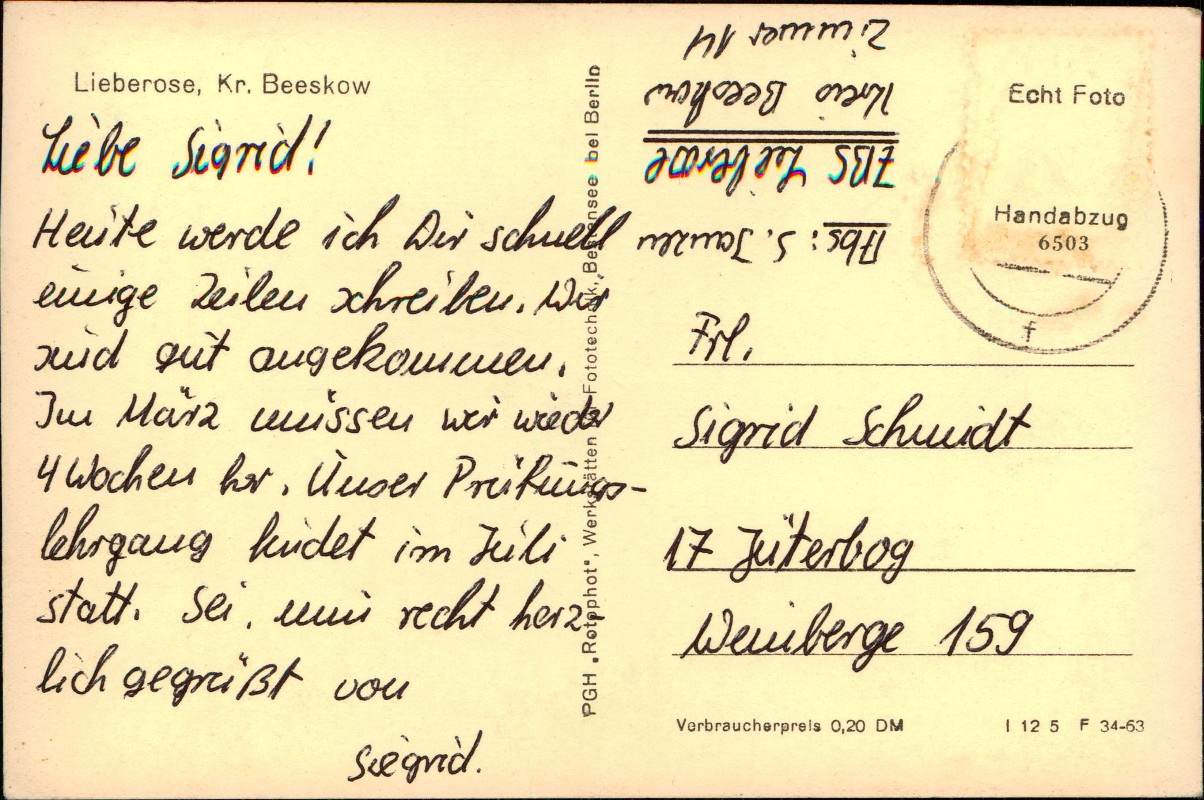 Lieberose, Kr. Beeskow
Liebe Sigrid!
Heute werde ich Dir schnell
einige Zeilen schreiben. Wir
sind gut angekommen.
Im März müssen wir wieder
4 Wochen her. Unser Prüfungs-
lehrgang findet im Juli
statt. Sei, nun recht herz
lich gegrüßt von
Siegrid.
PGH „Rotophot", Werkstätten für Fototechnik, Bestensee bei Berlin
Zimmer 14
Kreis Beeskow
ZBS Lieberose
Abs: S. Janzen
Echt Foto
Handabzug
6503
f
Frl.
Sigrid Schmidt
17 Jüterbog
Weinberge 159
Verbraucherpreis 0,20 DM
I 12 5 F 34-63